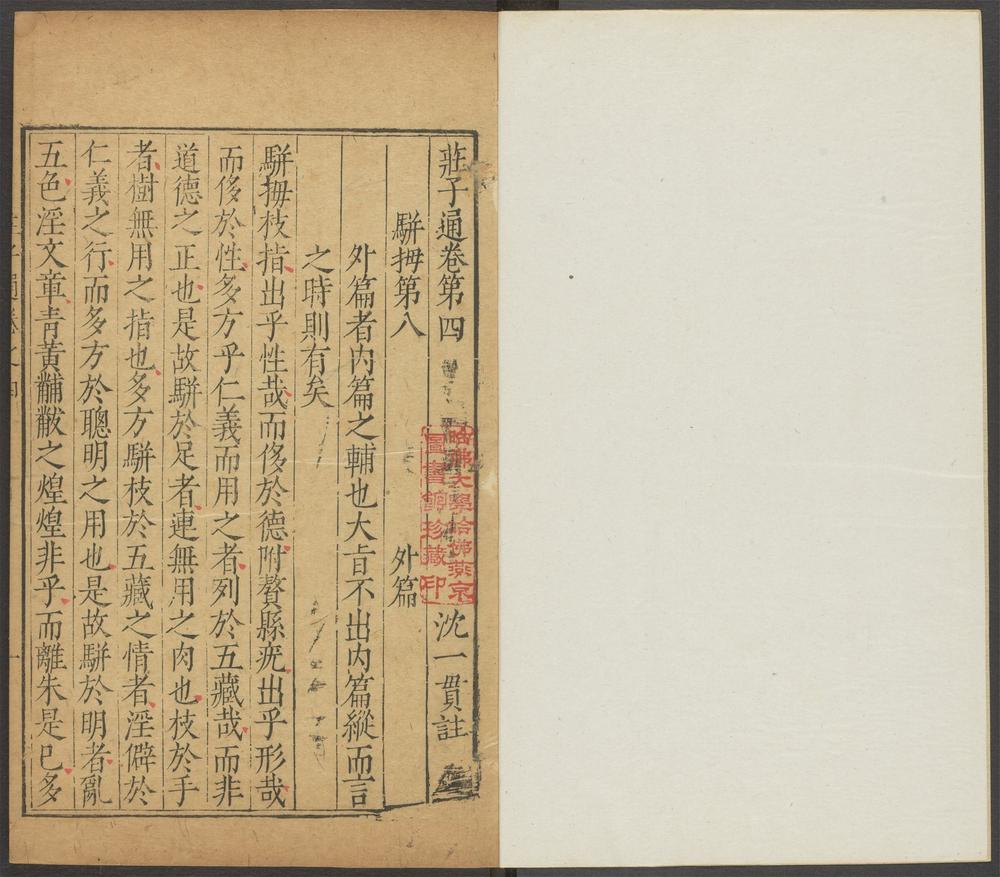 莊子通卷第四 沈一貫註
駢拇第八 外篇
外篇者內篇之輔也大旨不出內篇縱而言
之時則有矣
駢拇枝指出乎性哉而侈於德附贅縣疣出乎形哉
而侈於性多方乎仁義而用之者列於五藏哉而非
道德之正也是故駢於足者連無用之肉也枝於手
者樹無用之指也多方駢枝於五藏之情者淫僻於
仁義之行而多方於聰明之用也是故駢於明者亂
五色淫文章青黃黼黻之煌煌非乎而離朱是巳多
哈佛大學哈佛燕京
圖書館珍藏印